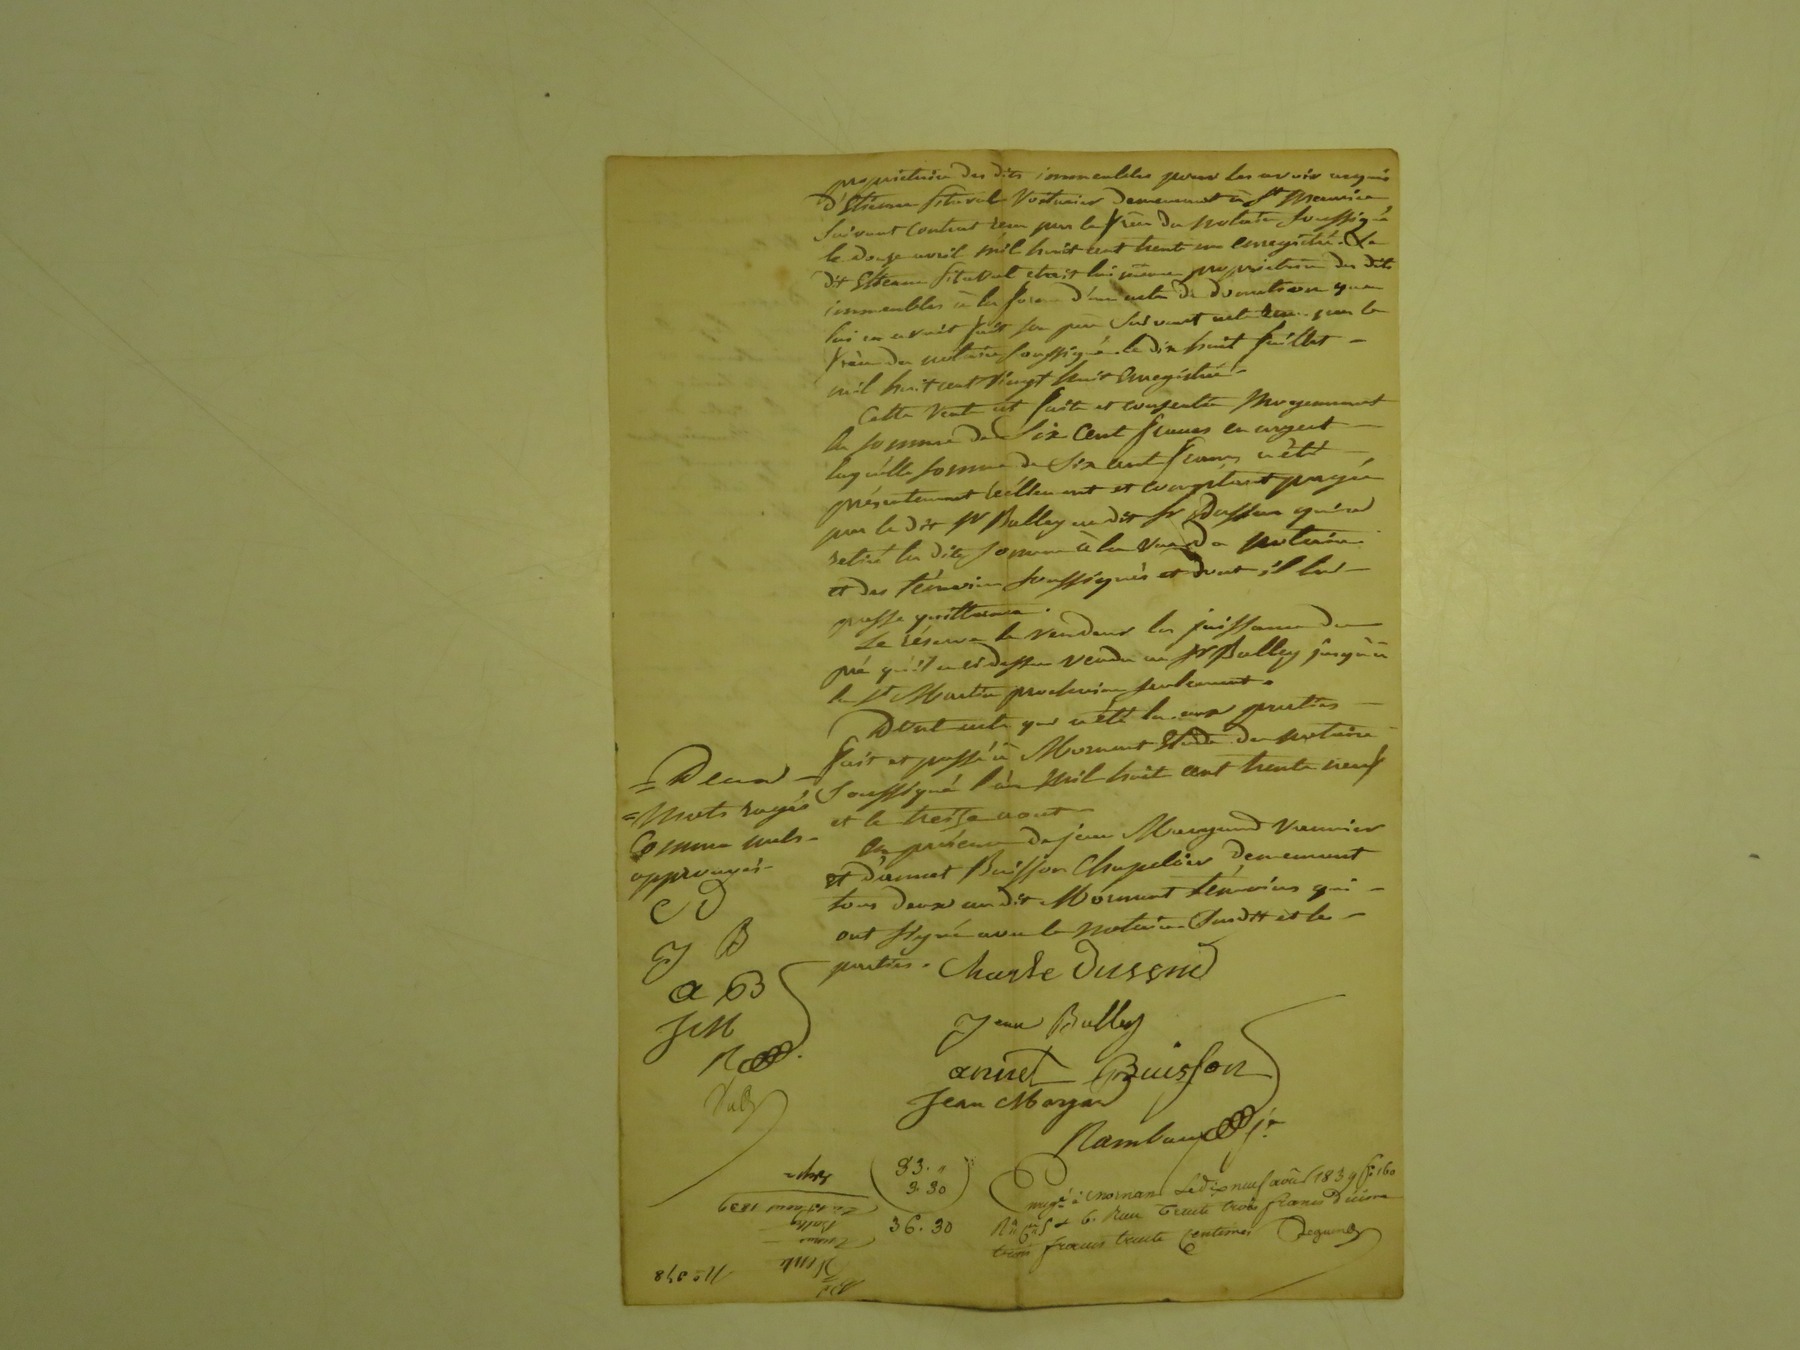 propriétaire des dits immeubles pour les avoir acquis
d'Etienne Voiturier demeurant à St Maurice
suivant contrat reçu par le frère du notaire soussigné
le douze avril mil huit cent trente un enregistré. Le
dit Etienne était lui même propriétaire des dits
immeubles à la forme d'un acte de donation que
lui en avait fait son père suivant acte reçu par le
frère du notaire soussigné le dix huit juillet
mil huit cent vingt huit enregistré.
Cette vente est faite et consentie moyennant
la somme de Six Cent francs en argent
laquelle somme de Six cent francs a été
présentement réellement et comptant payée
par le dit Sr Balley au dit Sr qui a
retiré la dite somme à la vue du notaire
et des témoins soussignés et dont il lui
passe quittance.
Se réserve le vendeur la jouissance du
pré qu'il a ci dessus vendu au Sr Balley jusqu'à
la St Martin prochaine seulement.
Dont acte qui a été lu aux parties
fait et passé à Mornant Etude du notaire
soussigné l'an mil huit cent trente neuf
et le treize aout
En présence de jean Margand
et d'annet Buisson Chapelier demeurant
tous deux au dit Mornant témoins qui
ont signé avec le notaire Susdit et les
parties.
= Deux
= Mots rayés
Comme nuls
approuvés
C D
J B
a B
J M
R
Charle
Jean Balley
annet Buisson
Jean
Rambaud Je
83. "
3.30
36.30
Enregé à Mornant Le dix neuf août 1839 fo 160
Ro Cs 5 & 6. Reçu trente trois francs Décime
trois francs trente Centimes
No 348
Vente
Balley
Du 13 aout 1839